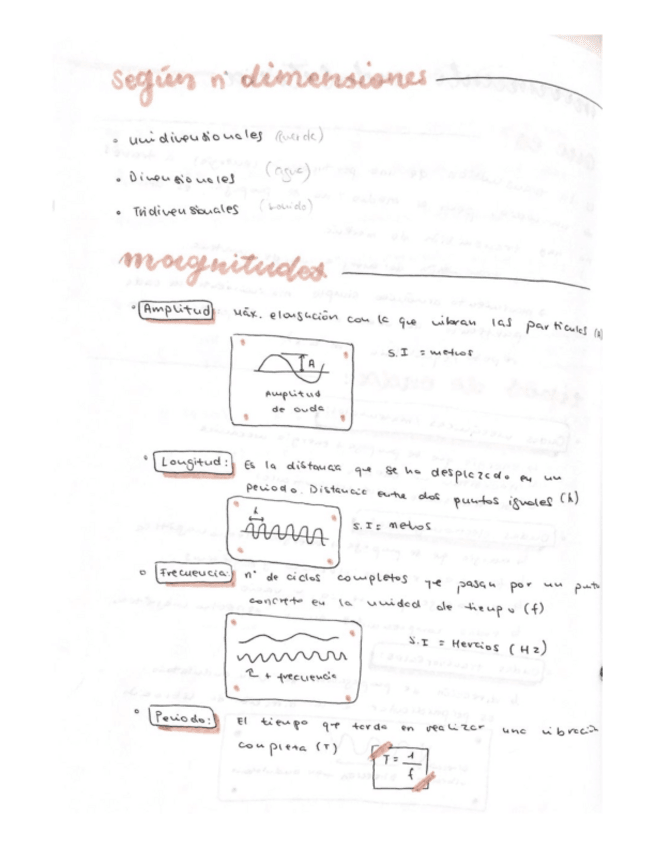 según nº dimensiones
• unidimensionales (cuerda)
• Dimensionales (agua)
• Tridimensionales (sonido)
magnitudes
• Amplitud máx. elongación con la que vibran las partículas (A)
S.I = metros
A
Amplitud
de onda
• Longitud: Es la distancia que se ha desplazado en un
periodo. Distancia entre dos puntos iguales (λ)
λ
S.I = metros
• Frecuencia: nº de ciclos completos que pasan por un punto
concreto en la unidad de tiempo (f)
S.I = Hercios (Hz)
+ frecuencia
• Periodo: El tiempo que tarda en realizar una vibración
completa (T)
T = 1/f